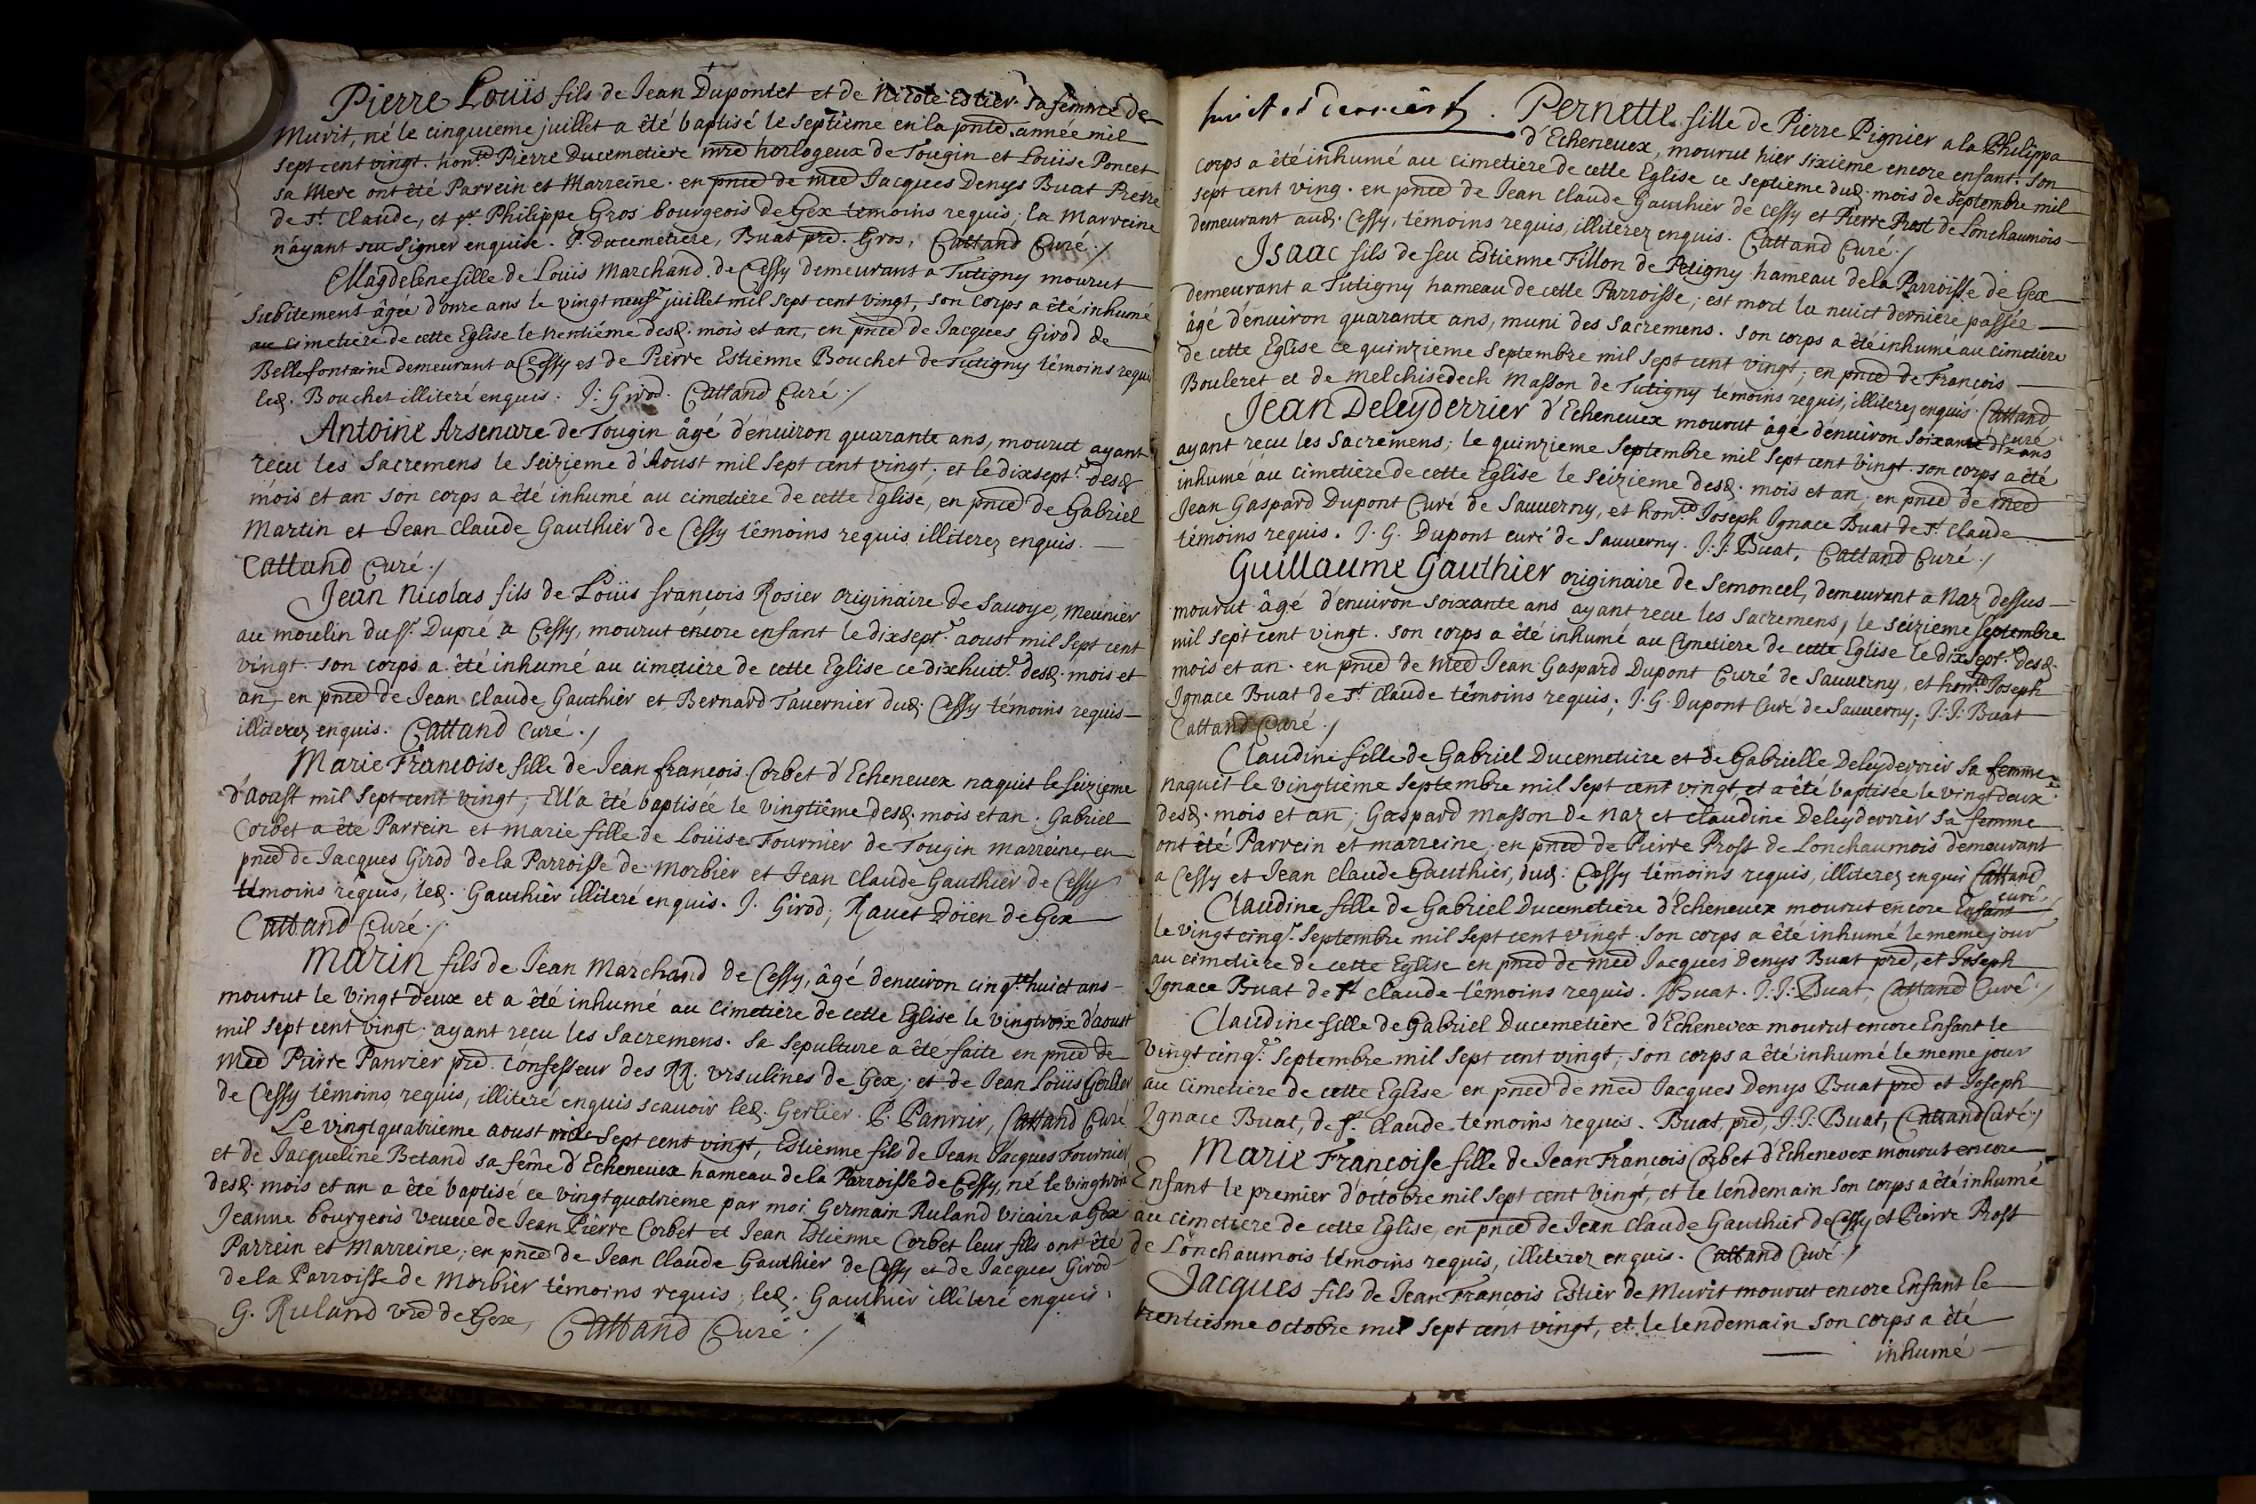 Pierre Louïs fils de Jean Dupontet et de Nicole Estier sa femme de
Murit, né le cinquieme juillet a été baptisé le septieme en la pnte. année mil
sept cent vingt. honble Pierre Ducemetiere mre horlogeux de Tougin et Louïse Poncet
sa Mere ont été Parrein et Marreine. en pnce de Mre Jacques Denys Buat Pretre
de St. Claude, et sr Philippe Gros bourgeois de Gex témoins requis, la Marreine
n'ayant sceu signer enquise. P. Ducemetiere, Buat pre. Gros, Cattand Curé./
Magdelene fille de Louïs Marchand de Cessy demeurant a Tutigny mourut
subitement âgée d'onze ans le vingt neufe. juillet mil sept cent vingt, son corps a été inhumé
au cimetiere de cette Eglise le trentiéme desd. mois et an, en pnce de Jacques Girod de
Bellefontaine demeurant a Cessy et de Pierre Estienne Bouchet de Tutigny témoins requis
led. Bouchet illiteré enquis: J: Girod. Cattand Curé./
Antoine Arsenare de Tougin âgé d'enuiron quarante ans, mourut ayant
reçu les Sacremens le seizieme d'Aoust mil sept cent vingt; et le dixsepte. desd
mois et an son corps a été inhumé au cimetiere de cette Eglise, en pnce de Gabriel
Martin et Jean Claude Gauthier de Cessy témoins requis illiterez enquis.
Cattand Curé./
Jean Nicolas fils de Louïs françois Rosier originaire de Sauoye, Meunier
au moulin du sr. Dupré a Cessy, mourut encore enfant le dixsepte. aoust mil sept cent
vingt. son corps a été inhumé au cimetiere de cette Eglise ce dixhuite. desd. mois et
an, en pnce de Jean Claude Gauthier et Bernard Tauernier dud. Cessy témoins requis
illiterez enquis. Cattand Curé./
Marie Françoise fille de Jean françois Corbet d'Echeneuex naquit le seizieme
d'aoust mil sept cent vingt, Ell'a été baptisée le vingtième desd. mois et an. Gabriel
Corbet a été Parrein et Marie fille de Louïse Fournier de Tougin marreine, en
pnce de Jacques Girod de la Parroisse de Morbier et Jean Claude Gauthier de Cessy
témoins requis, led. Gauthier illiteré enquis. J. Girod, Rauet Doïen de Gex
Cattand Curé./
Marin fils de Jean Marchand de Cessy, âgé d'enuiron cinqte huict ans
mourut le vingt deux et a été inhumé au Cimetiere de cette Eglise le vingtroix d'aoust
mil sept cent vingt. ayant reçu les Sacremens. Sa sepulture a été faite en pnce de
Mre Pierre Panrier pre. Confesseur des RR. Vrsulines de Gex, et de Jean Louïs Gerlier
de Cessy témoins requis, illiteré enquis scauoir led. Gerlier. P. Panrier, Cattand Curé
Le vingtquatrieme aoust mil sept cent vingt, Estienne fils de Jean Jacques Fournier
et de Jacqueline Betand sa feme d'Echeneuex hameau de la Parroisse de Cessy, né le vingtroix
desd. mois et an a été baptisé ce vingtquatrieme par moi Germain Ruland vicaire a Gex
Jeanne bourgeois veuue de Jean Pierre Corbet et Jean Estienne Corbet leur fils ont été
Parrein et Marreine, en pnce de Jean Claude Gauthier de Cessy et de Jacques Girod
de la Parroisse de Morbier témoins requis, led. Gauthier illiteré enquis.
G. Ruland vre de Gex, Cattand Curé./
Pernette fille de Pierre Pignier a la Philippa
d'Echeneuex, mourut hier sixieme encore enfant. son
corps a été inhumé au cimetiere de cette Eglise ce septieme dud. mois de septembre mil
sept cent ving. en pnce de Jean Claude Gauthier de Cessy et Pierre Prost de Lonchaumois
demeurant aud. Cessy, témoins requis, illiterez enquis. Cattand Curé./
Isaac fils de feu Estienne Fillon de Petigny hameau de la Parroisse de Gex
demeurant a Tutigny hameau de cette Parroisse, est mort la nuict derniere passée
âgé d'enuiron quarante ans, muni des Sacremens. son corps a été inhumé au cimetiere
de cette Eglise ce quinzieme Septembre mil sept cent vingt, en pnce de François
Bouleret et de Melchisedech Masson de Tutigny témoins requis, illiterez enquis. Cattand
Curé.
Jean Deleyderrier d'Echeneuex mourut âgé d'enuiron soixante dix ans
ayant reçu les Sacremens, le quinzieme Septembre mil sept cent vingt. son corps a été
inhumé au cimetiere de cette Eglise le seizieme desd. mois et an, en pnce de Mre
Jean Gaspard Dupont Curé de Sauuerny, et honble Joseph Ignace Buat de St. Claude
témoins requis. J. G. Dupont curé de Sauuerny. J. J. Buat, Cattand Curé./
Guillaume Gauthier originaire de Semoncel, demeurant a Naz dessus
mourut âgé d'enuiron soixante ans ayant reçu les Sacremens, le seizieme Septembre
mil sept cent vingt. son corps a été inhumé au Cimetiere de cette Eglise le dixsepte. desd.
mois et an. en pnce de Mre Jean Gaspard Dupont Curé de Sauuerny, et honble Joseph
Ignace Buat de St Claude témoins requis; J. G. Dupont Curé de Sauuerny, J. J. Buat
Cattand Curé./
Claudine fille de Gabriel Ducemetiere et de Gabrielle Deleyderrier sa femme
naquit le vingtième Septembre mil sept cent vingt, et a été baptisée le vingtdeuxe.
desd. mois et an, Gaspard Masson de Naz et Claudine Deleyderrier sa femme
ont été Parrein et marreine, en pnce de Pierre Prost de Lonchaumois demeurant
a Cessy et Jean Claude Gauthier, dud. Cessy témoins requis, illiterez enquis Cattand
curé./
Claudine fille de Gabriel Ducemetiere d'Echeneuex mourut encore Enfant
le vingt cinqe. Septembre mil sept cent vingt. son corps a été inhumé le meme jour
au cimetiere de cette Eglise en pnce de Mre Jacques Denys Buat pre, et Joseph
Ignace Buat de St Claude témoins requis. JBuat. J. J. Buat, Cattand Curé./
Claudine fille de Gabriel Ducemetiere d'Echenevex mourut encore Enfant le
vingt cinqe. Septembre mil sept cent vingt, son corps a été inhumé le meme jour
au cimetiere de cette Eglise en pnce de Mre Jacques Denys Buat pre et Joseph
Ignace Buat, de St. Claude temoins requis. Buat, pre, J. J. Buat, Cattand Curé./
Marie Françoise fille de Jean François Corbet d'Echenevex mourut encore
Enfant le premier d'octobre mil sept cent vingt, et le lendemain son corps a été inhumé
au cimetiere de cette Eglise, en pnce de Jean Claude Gauthier de Cessy et Pierre Prost
de Lonchaumois témoins requis, illiterez enquis. Cattand Curé./
Jacques fils de Jean François Estier de Murit mourut encore Enfant le
trentiesme octobre mil sept cent vingt, et le lendemain son corps a été
inhumé